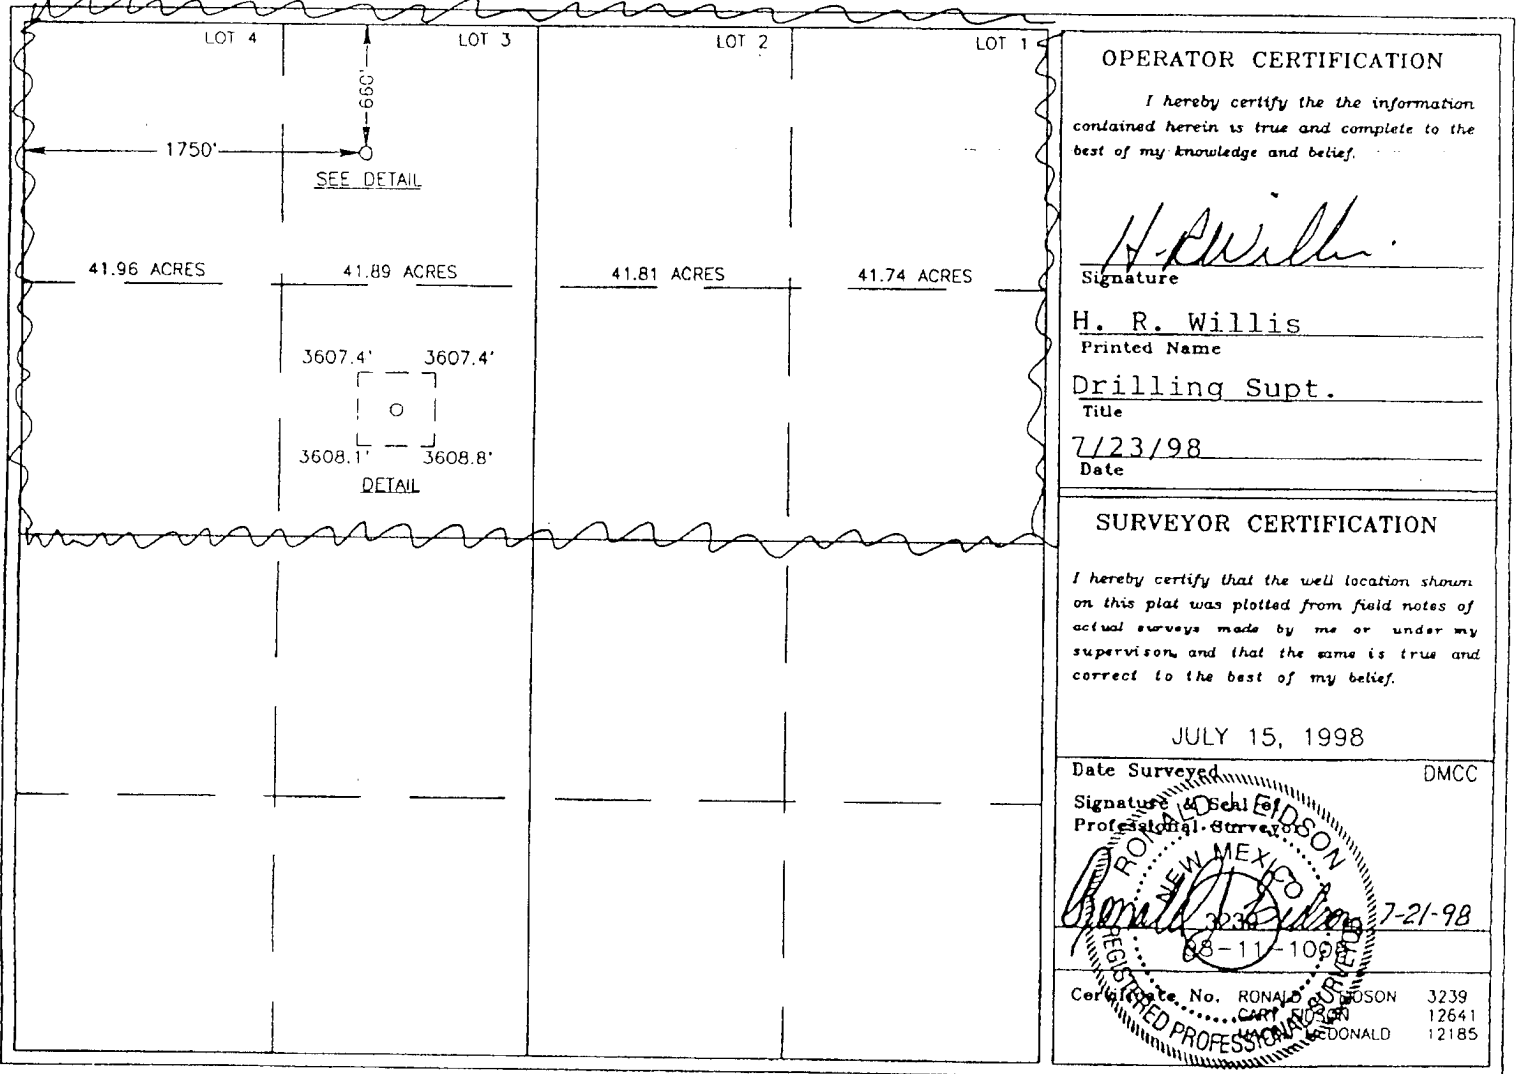 LOT 4
LOT 3
LOT 2
LOT 1
660'
1750'
SEE DETAIL
41.96 ACRES
41.89 ACRES
41.81 ACRES
41.74 ACRES
3607.4'
3607.4'
3608.1'
3608.8'
DETAIL
OPERATOR CERTIFICATION
I hereby certify the the information
contained herein is true and complete to the
best of my knowledge and belief.
H. R. Willis
Signature
H. R. Willis
Printed Name
Drilling Supt.
Title
7/23/98
Date
SURVEYOR CERTIFICATION
I hereby certify that the well location shown
on this plat was plotted from field notes of
actual surveys made by me or under my
supervison, and that the same is true and
correct to the best of my belief.
JULY 15, 1998
Date Surveyed
DMCC
Signature & Seal of
Professional Surveyor
RONALD J. EIDSON
NEW MEXICO
3239
REGISTERED PROFESSIONAL SURVEYOR
Ronald J. Eidson 7-21-98
98-11-1008
Certificate No. RONALD EIDSON 3239
GARY EIDSON 12641
McDONALD 12185